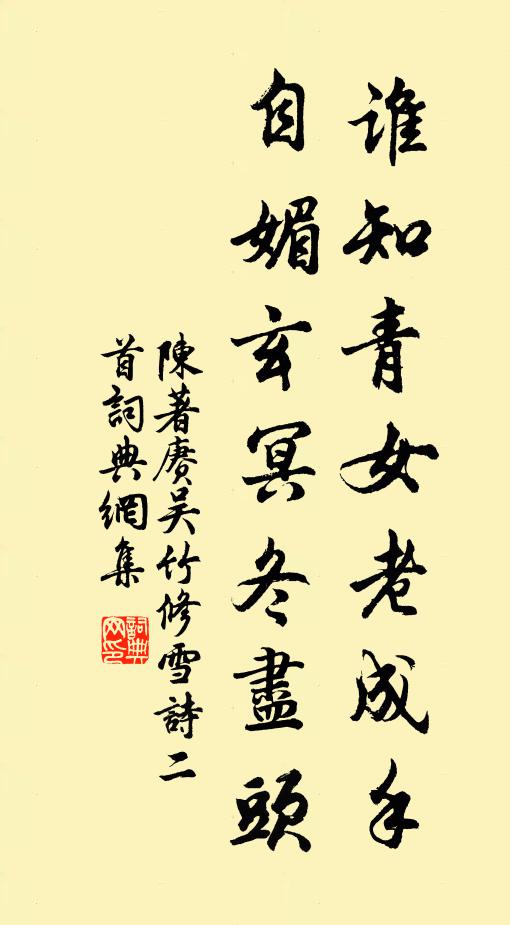 誰知青女老成手
自媚玄冥冬盡頭
陳著賡吳竹修雪詩二
首詞典網集
詞典
网印